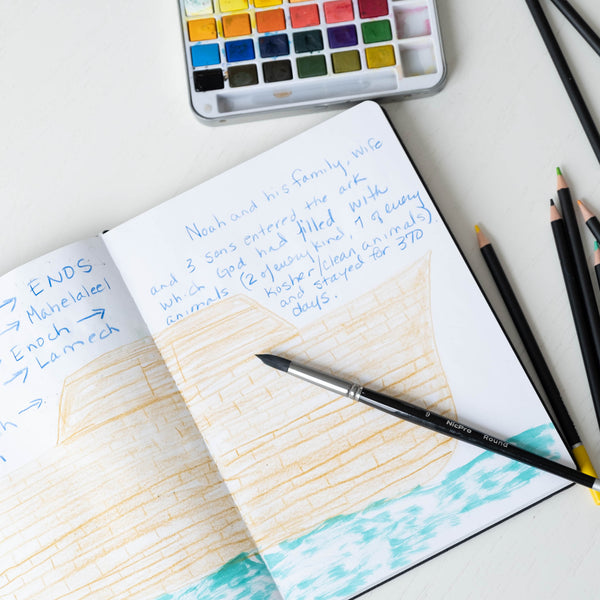 → ENOS
→ Mahelaleel
→ Enoch →
→ Lamech
h →
Noah and his family, wife
and 3 sons entered the ark
which God had filled with
animals (2 of every kind, 7 of every
kosher/clean animals)
and stayed for 370
days.
9 NicPro Round